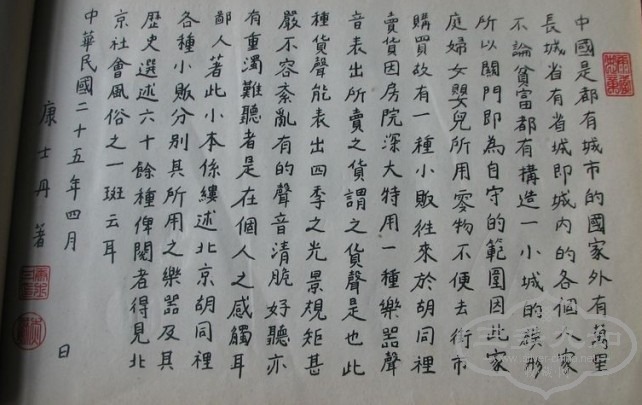 中國是都有城市的國家外有萬里
長城省有省城即城內的各個人家
不論貧富都有構造一小城的模形
所以關門即為自守的範圍因此家
庭婦女嬰兒所用零物不便去街市
購買故有一種小販往來於胡同裡
賣貨因房院深大特用一種樂器聲
音表出所賣之貨謂之貨聲是也此
種貨聲能表出四季之光景規矩甚
嚴不容紊亂有的聲音清脆好聽亦
有重濁難聽者是在個人之感觸耳
鄙人著此小本係縷述北京胡同裡
各種小販分別其所用之樂器及其
歷史選述六十餘種俾閱者得見北
京社會風俗之一斑云耳
中華民國二十五年四月 日
康士丹著